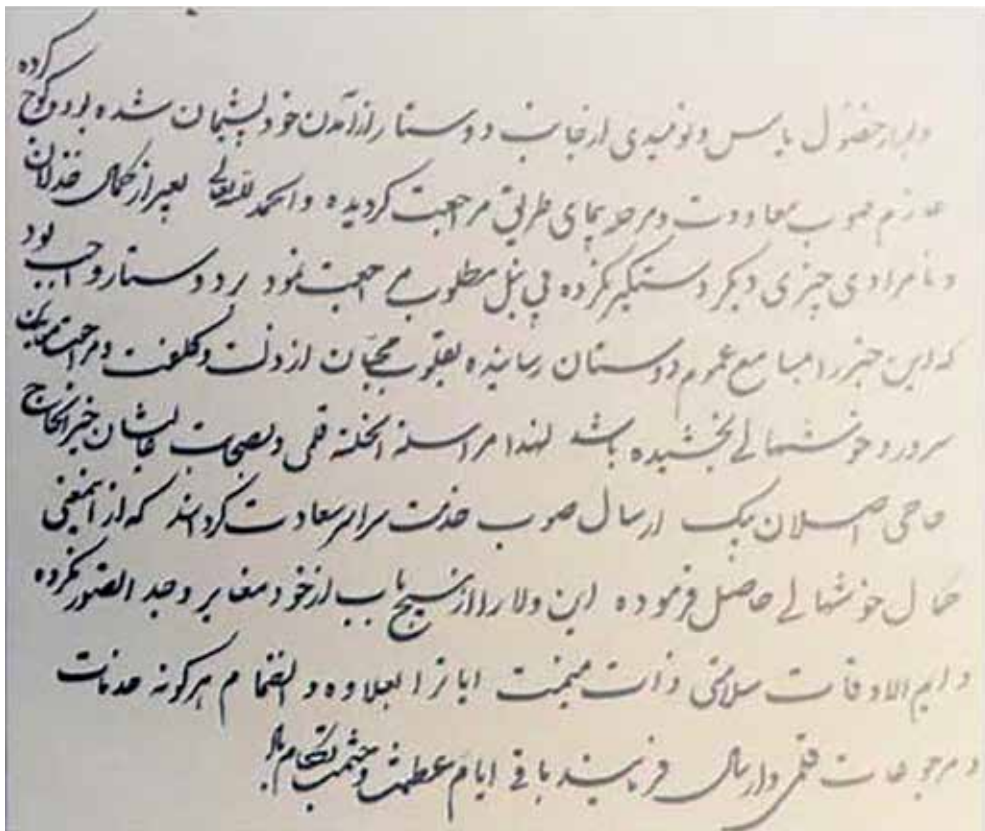 کرده
و بر از حصول یاس و نومیدی از جانب دوستار از آمدن خود پشیمان شده بود و کوچ
عازم صوب معاودت و مرحله پیمای طریق مراجعت کردیده و الحمد لله تعالی بغیر از کمال خذلان
و نامرادی چیزی دیکر دستکیر نکرده بی نیل مطلوب مراجعت نمود بر دوستار واجب بود
که این خبر را مسامع عموم دوستان رسانیده بقلوب محبان از ذلت و کلفت و مراجعت
سرور و خوشحالی بخشیده باشد لهذا مراسله قلمی و بصحابت عالیشان خیر الحاج
حاجی اصلان بیک ارسال صوب خدمت سراسر سعادت کردانید که از اینمعنی
کمال خوشحالی حاصل فرموده این ولا را از هیچ باب از خود مغایر و جدا تصور نکرده
دایم الاوقات سلامتی ذات میمنت را بعلاوه و انضمام هرکونه خدمات
و مرجوعات قلمی و ارسال فرمایند باقی ایام عظمت و حشمت بکام باد